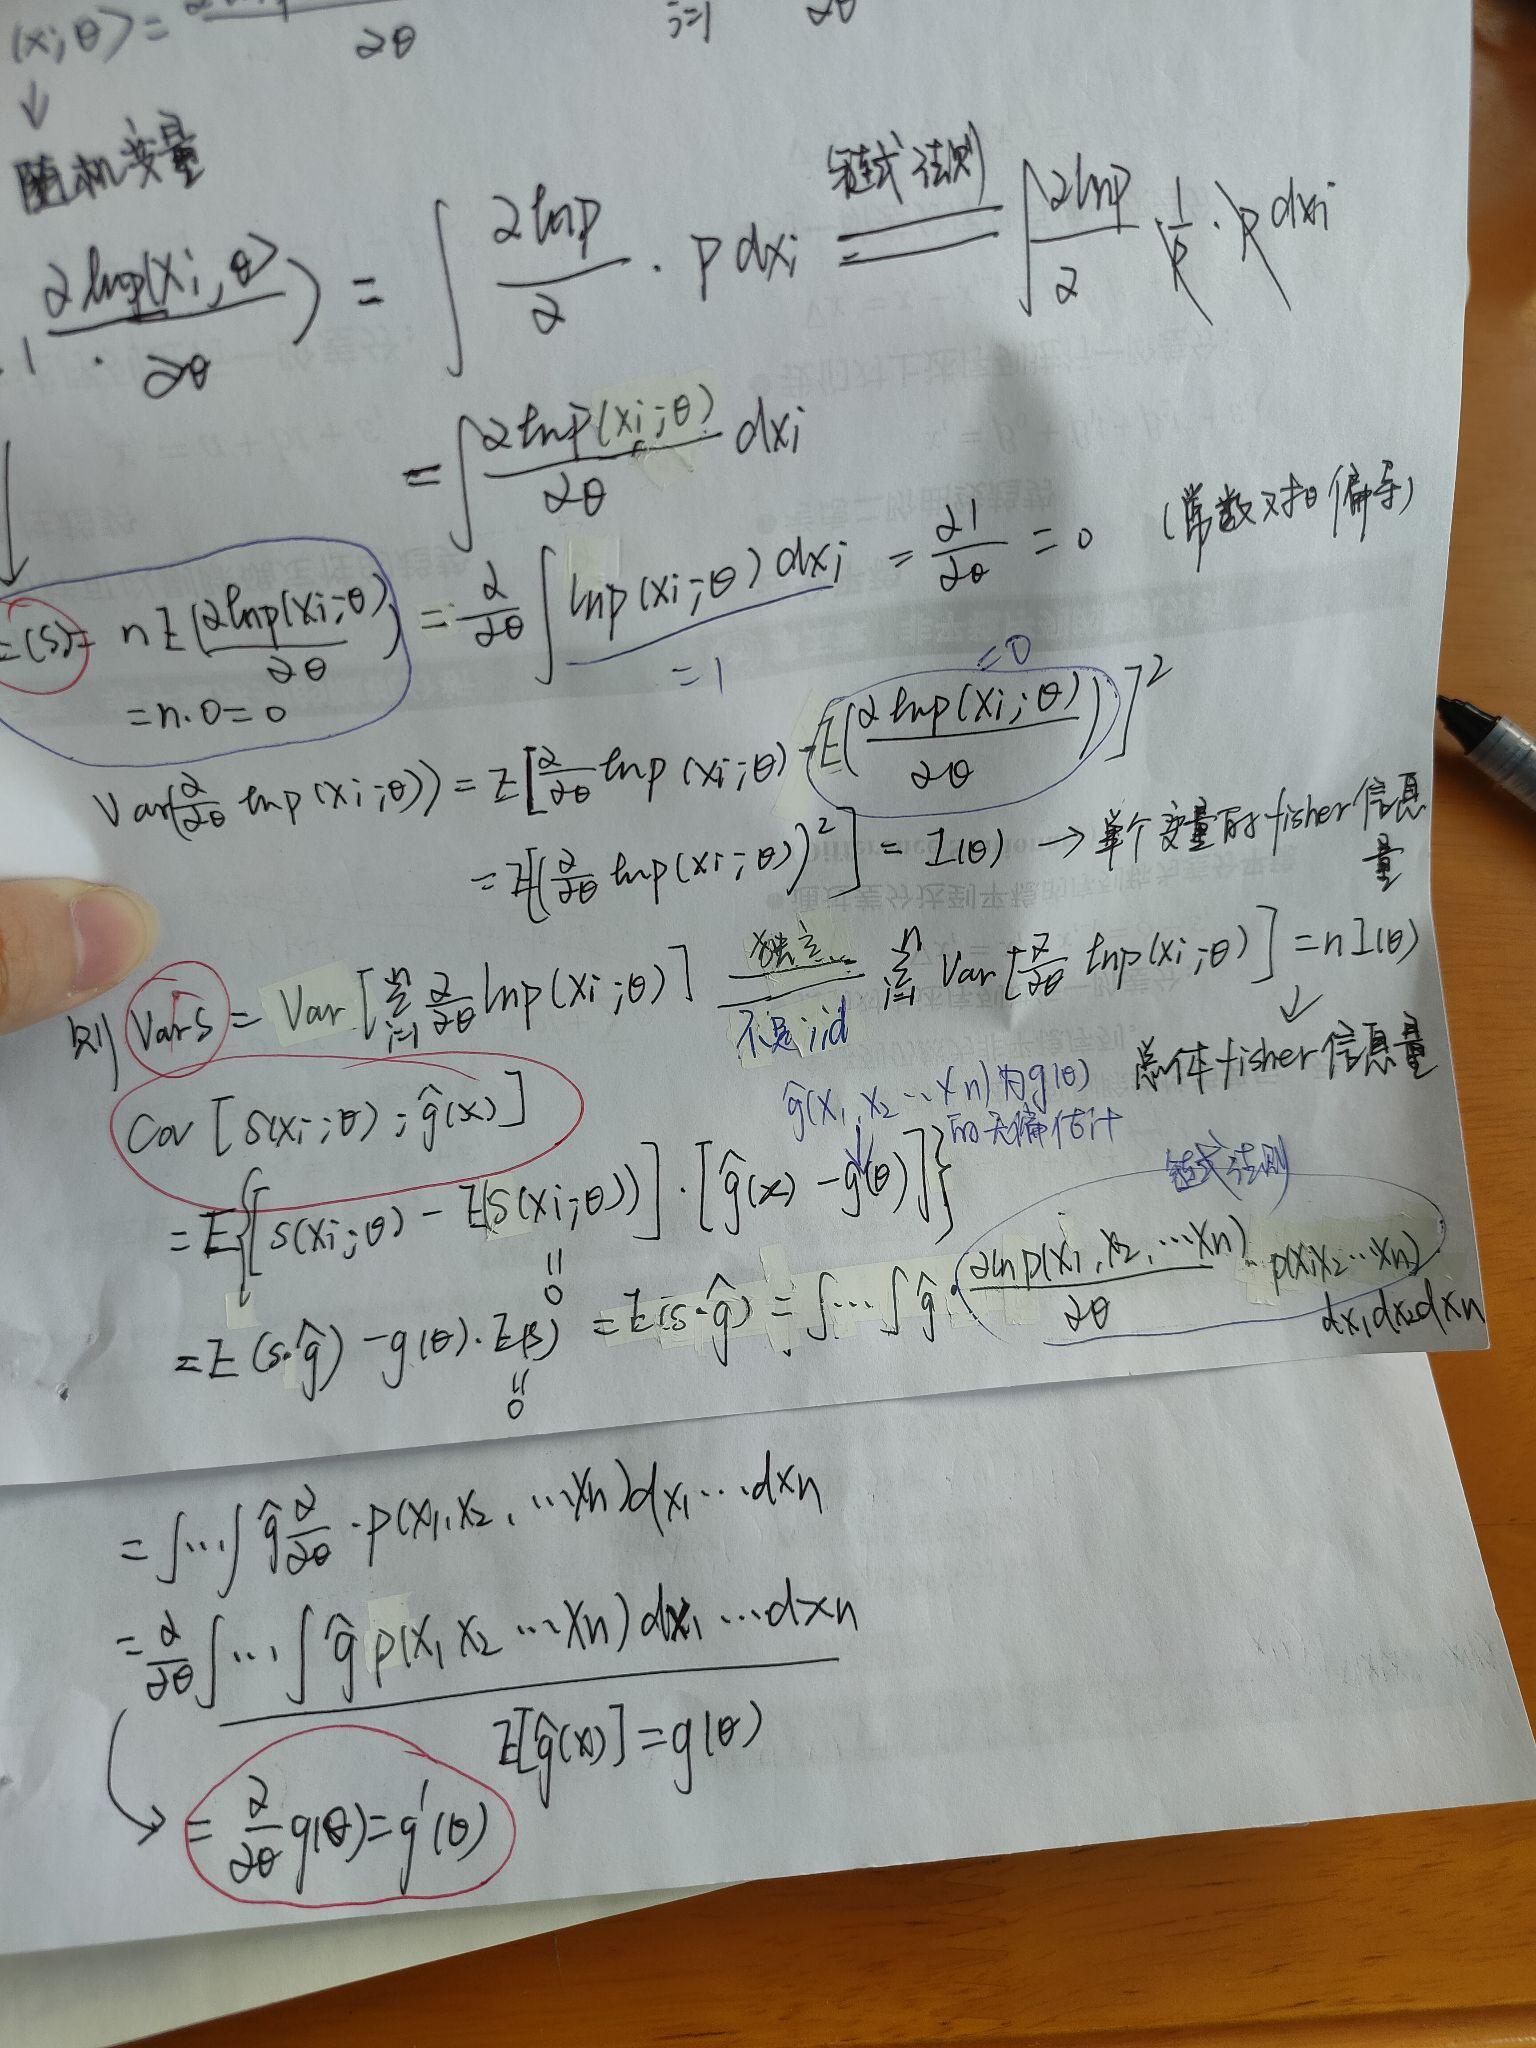 (xi;θ)= ∂θ i=1 ∂θ
↓
随机变量
∂lnp(xi,θ)/∂θ) = ∫ ∂lnp/∂ · p dxi 链式法则 ∫ ∂lnp/∂ · 1/p · p dxi
= ∫ ∂lnp(xi;θ)/∂θ dxi
E(S)= nE(∂lnp(xi;θ)/∂θ) = ∂/∂θ ∫ lnp(xi;θ)dxi = ∂1/∂θ = 0 (常数对θ偏导)
=1
=n·0=0
=0
Var(∂/∂θ lnp(xi;θ)) = E[∂/∂θ lnp(xi;θ) - E(∂lnp(xi;θ)/∂θ)]²
= E[(∂/∂θ lnp(xi;θ))²] = I(θ) → 单个变量的fisher信息量
则 VarS = Var[∑ i=1 n ∂/∂θ lnp(xi;θ)] 独立 ∑ i=1 n Var[∂/∂θ lnp(xi;θ)] = nI(θ)
不是iid
↓
总体fisher信息量
Cov[S(xi;θ);ĝ(x)]
ĝ(x1,x2…xn)为g(θ)
的无偏估计
= E{[S(xi;θ) - E(S(xi;θ))]·[ĝ(x) - g(θ)]}
=0
链式法则
= E(S·ĝ) - g(θ)·E(S) = E(S·ĝ) = ∫…∫ ĝ · ∂lnp(x1,x2,…xn)/∂θ · p(x1x2…xn) dx1dx2dxn
=0
= ∫…∫ ĝ ∂/∂θ · p(x1,x2,…xn)dx1…dxn
= ∂/∂θ ∫…∫ ĝ p(x1x2…xn)dx1…dxn
E[ĝ(x)]=g(θ)
→ = ∂/∂θ g(θ)=g'(θ)